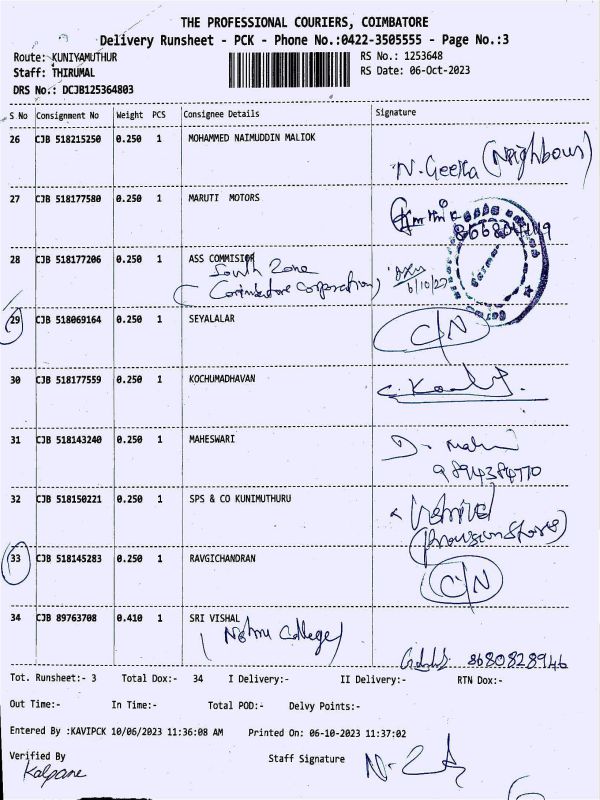 THE PROFESSIONAL COURIERS, COIMBATORE
Delivery Runsheet - PCK - Phone No.:0422-3505555 - Page No.:3
Route: KUNIYAMUTHUR
RS No.: 1253648
Staff: THIRUMAL
RS Date: 06-Oct-2023
DRS No.: DCJB125364803
S No Consignment No Weight PCS Consignee Details Signature
26 CJB 518215250 0.250 1 MOHAMMED NAIMUDDIN MALIOK
N. Geetha (Neighbour)
27 CJB 518177580 0.250 1 MARUTI MOTORS
28 CJB 518177206 0.250 1 ASS COMMISIOR
South Zone
(Coimbatore Corporation) 6/10/23
29 CJB 518069164 0.250 1 SEYALALAR C/N
30 CJB 518177559 0.250 1 KOCHUMADHAVAN
31 CJB 518143240 0.250 1 MAHESWARI
9894384770
32 CJB 518150221 0.250 1 SPS & CO KUNIMUTHURU
(Provision Store)
33 CJB 518145283 0.250 1 RAVGICHANDRAN C/N
34 CJB 89763708 0.410 1 SRI VISHAL
(Nehru College)
8680828946
Tot. Runsheet:- 3 Total Dox:- 34 I Delivery:- II Delivery:- RTN Dox:-
Out Time:- In Time:- Total POD:- Delvy Points:-
Entered By :KAVIPCK 10/06/2023 11:36:08 AM Printed On: 06-10-2023 11:37:02
Verified By Staff Signature
Kalpane